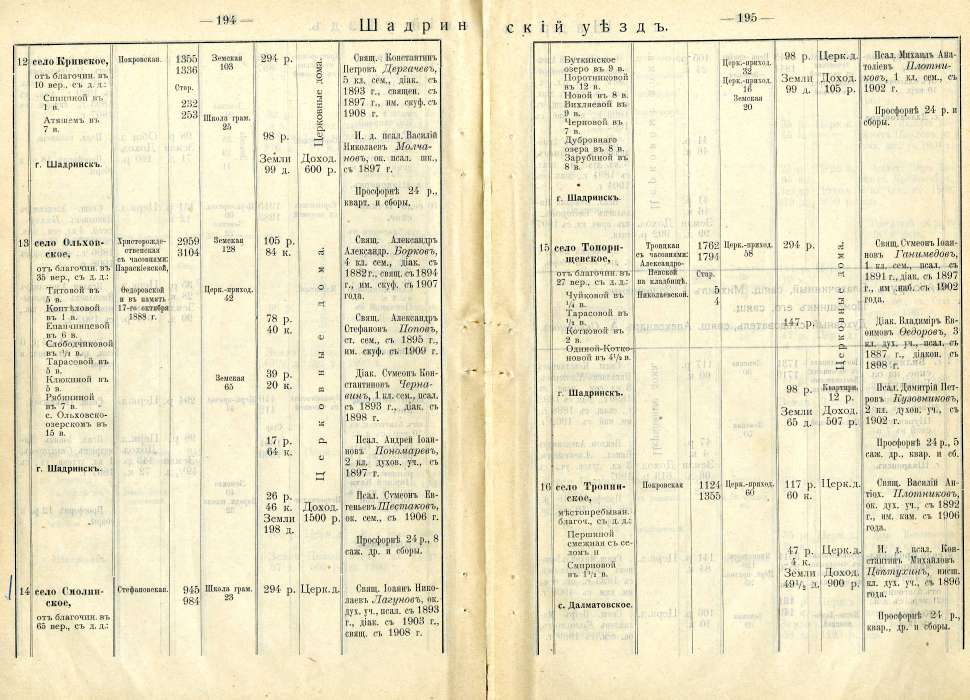 — 194 —
Шадрин
12 село Кривское,
отъ благочин. въ
10 вер., съ д.д.:
Спициной въ
1 в.
Атяшемъ въ
7 в.
г. Шадринскъ.
Покровская.
1355
1336
Стар.
232
253
Земская
103
Школа грам.
25
294 р.
98 р.
Земли
99 д.
Церковные дома.
Доход.
600 р.
Свящ. Константинъ
Петровъ Дергачевъ,
5 кл. сем., діак. съ
1893 г., священ. съ
1897 г., им. скуф. съ
1908 г.
И. д. псал. Василій
Николаевъ Молча-
новъ, ок. псал. шк.,
съ 1897 г.
Просфорнѣ 24 р.,
кварт. и сборы.
13 село Ольхов-
ское,
отъ благочин. въ
35 вер., съ д.д.:
Титовой въ
5 в.
Коптѣловой
въ 1 в.
Епанчинцевой
въ 6 в.
Слободчиковой
въ 1/2 в.
Тарасовой въ
5 в.
Клюкиной въ
5 в.
Рябининой
въ 7 в.
с. Ольховско-
озерскомъ въ
15 в.
г. Шадринскъ.
Христорожде-
ственская
съ часовнями:
Параскіевской,
Ѳедоровской
и въ память
17-го октября
1888 г.
2959
3104
Земская
128
Церк.-приход.
42
Земская
65
105 р.
84 к.
78 р.
40 к.
39 р.
20 к.
17 р.
64 к.
26 р.
46 к.
Земли
198 д.
Церковные дома.
Доход.
1500 р.
Свящ. Александръ
Александр. Борковъ,
4 кл. сем., діак. съ
1882 г., свящ. съ 1894
г., им. скуф. съ 1907
года.
Свящ. Александръ
Стефановъ Поповъ,
ст. сем., съ 1895 г.,
им. скуф. съ 1909 г.
Діак. Сѵмеонъ Кон-
стантиновъ Черна-
винъ, 1 кл. сем., псал.
съ 1893 г., діак. съ
1898 г.
Псал. Андрей Іоан-
новъ Пономаревъ,
2 кл. духов. уч., съ
1897 г.
Псал. Сѵмеонъ Ев-
геньевъ Шестаковъ,
ок. сем., съ 1906 г.
Просфорнѣ 24 р., 8
саж. др. и сборы.
14 село Смолин-
ское,
отъ благочин. въ
65 вер., съ д.д.:
Стефановская.
945
984
Школа грам.
23
294 р.
Церк.д.
Свящ. Іоаннъ Нико-
лаевъ Лагуновъ, ок.
дух. уч., псал. съ 1893
г., діак. съ 1903 г.,
свящ. съ 1908 г.
— 195 —
скій уѣздъ.
Буткинское
озеро въ 9 в.
Поротниковой
въ 12 в.
Новой въ 8 в.
Вихляевой въ
9 в.
Черновой въ
7 в.
Дубровнаго
озера въ 8 в.
Зарубиной въ
8 в.
г. Шадринскъ.
Церк.-приход.
32
Церк.-приход.
16
Земская
20
98 р.
Земли
99 д.
Церк.д.
Доход.
105 р.
Псал. Михаилъ Ана-
толіевъ Плотни-
ковъ, 1 кл. сем., съ
1902 г.
Просфорнѣ 24 р. и
сборы.
15 село Топори-
щевское,
отъ благочин. въ
27 вер., съ д.д.:
Чуйковой въ
1/4 в.
Тарасовой въ
1/2 в.
Котковой въ
2 в.
Одиной-Котко-
новой въ 4 1/2 в.
г. Шадринскъ.
Троицкая
съ часовнями:
Александро-
Невской
на кладбищѣ.
Николаевской.
1762
1794
Стар.
5
4
Церк.-приход.
58
294 р.
147 р.
98 р.
Земли
65 д.
Церковные дома.
Квартирн.
12 р.
Доход.
507 р.
Свящ. Сѵмеонъ Іоан-
новъ Ганимедовъ,
1 кл. сем., псал. съ
1891 г., діак. съ 1897
г., им наб. съ 1902
года.
Діак. Владиміръ Ев-
ѳимовъ Ѳедоровъ, 3
кл. дух. уч., псал. съ
1887 г., діакон. съ
1898 г.
Псал. Димитрій Пет-
ровъ Кузовниковъ,
2 кл. духов. уч., съ
1902 г.
Просфорнѣ 24 р., 5
саж. др., квар. и сб.
16 село Тронин-
ское,
мѣстопребыван.
благоч., съ д.д.:
Першиной
смежная съ се-
ломъ и
Сиприовой
въ 1 1/2 в.
с. Далматовское.
Покровская
1124
1355
Церк.-приход.
60
117 р.
60 к.
47 р.
4 к.
Земли
49 1/2 д.
Церк.д.
Церк.д.
Доход.
900 р.
Свящ. Василій Ан-
тіох. Плотниковъ,
ок. дух. уч., съ 1892
г., им. кам. съ 1906
года.
И. д. псал. Кон-
стантинъ Михайловъ
Цвѣтухинъ, низш.
кл. дух. уч., съ 1896
года.
Просфорнѣ 24 р.,
квар., др. и сборы.